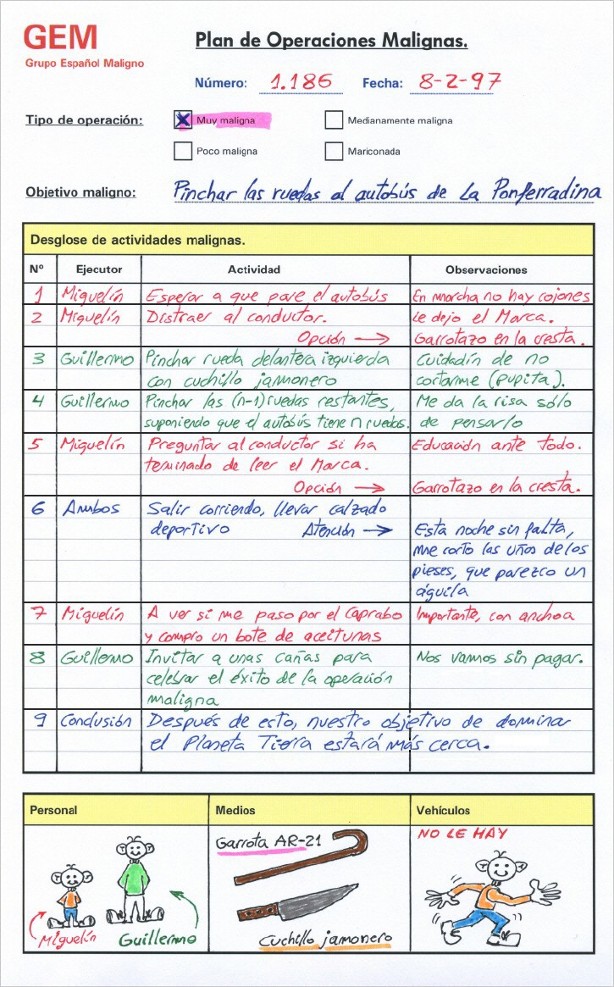 GEM
Grupo Español Maligno
Plan de Operaciones Malignas.
Número: 1.186 Fecha: 8-2-97
Tipo de operación: Muy maligna Medianamente maligna
Poco maligna Mariconada
Objetivo maligno: Pinchar las ruedas al autobús de la Ponferradina
Desglose de actividades malignas.
Nº Ejecutor Actividad Observaciones
1 Miguelín Esperar a que pare el autobús En marcha no hay cojones
2 Miguelín Distraer al conductor. Le dejo el Marca.
Opción → Garrotazo en la cresta.
3 Guillermo Pinchar rueda delantera izquierda Cuidadín de no
con cuchillo jamonero cortarme (pupita).
4 Guillermo Pinchar las (n-1) ruedas restantes, Me da la risa sólo
suponiendo que el autobús tiene n ruedas. de pensarlo
5 Miguelín Preguntar al conductor si ha Educación ante todo.
terminado de leer el Marca.
Opción → Garrotazo en la cresta.
6 Ambos Salir corriendo, llevar calzado
deportivo Atención → Esta noche sin falta,
me corto las uñas de los
pieses, que parezco un
águila
7 Miguelín A ver si me paso por el Caprabo Importante, con anchoa
y compro un bote de aceitunas
8 Guillermo Invitar a unas cañas para Nos vamos sin pagar.
celebrar el éxito de la operación
maligna
9 Conclusión Después de esto, nuestro objetivo de dominar
el Planeta Tierra estará más cerca.
Personal Medios Vehículos
Garrota AR-21 NO LE HAY
Miguelín Guillermo Cuchillo jamonero